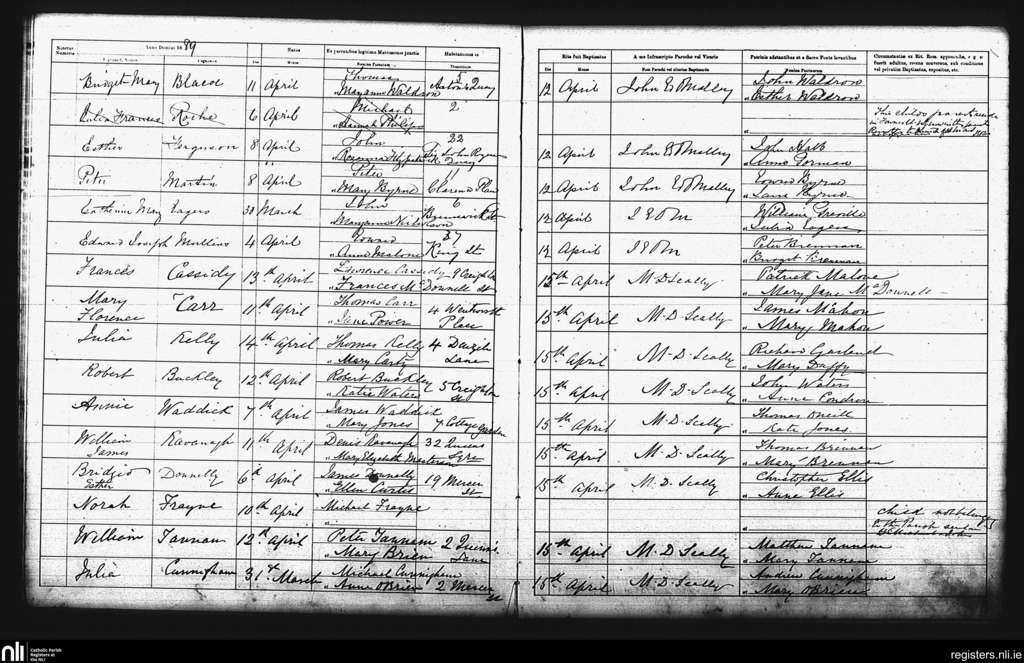 Anno Domini 1889
Natus
Ex parentibus legitimo Matrimonio junctis
Habitantibus in
Bridget Mary Blace 11 April Thomas
" Maryann Waldron Aston's Quay
Julia Frances Roche 6 April Michael 2
" Hannah Philips
Esther Ferguson 8 April John 33
" Rosanna Fitzpatrick Sir John Rogerson Quay
Peter Martin 8 April Peter 11
" Mary Byrne Clarence Place
Catherine May Eagers 30 March John 6
" Maryanne Nicholson Brunswick St
Edward Joseph Mullins 4 April Edward 37
" Anne Malone King St
Frances Cassidy 13th April Lawrence Cassidy 9 Creighton
" Frances McDonnell St
Mary Florence Carr 11th April Thomas Carr 4 Wentworth
" Jane Power Place
Julia Kelly 14th April Thomas Kelly 4
" Mary Carty Lane
Robert Buckley 12th April Robert Buckley 5 Creighton
" Katie Waters St
Annie Waddick 7th April James Waddick
" Mary Jones 7 College Garden
William James Kavanagh 11th April Denis Kavanagh 32 Queens
" Mary Elizabeth Masterson Sqre
Bridget Esther Donnelly 6th April James Donnelly 19 Mercer
" Ellen Curtis St
Norah Frayne 10th April Michael Frayne
"
William Tannam 12th April Peter Tannam
" Mary Brien 2 Queens Lane
Julia Cunningham 31st March Michael Cunningham
" Anne O'Brien 2 Mercer St
Rite fuit Baptizatus
A me Infrascripto Parocho vel Vicario
Patrinis adstantibus et a Sacro Fonte levantibus
12 April John E O'Malley John Waldron
" Esther Waldron
This child's
"
12 April John E O'Malley John Holt
" Anne Gorman
12 April John E O'Malley Edward Byrne
" Jane Byrne
12 April J E O'M William Greville
" Julia Eagers
12 April J E O'M Peter Brennan
" Bridget Brennan
15th April M. D. Scally Patrick Malone
" Mary Jane McDonnell
15th April M. D. Scally James Mahon
" Mary Mahon
15th April M. D. Scally Richard Garland
" Mary Duffy
15th April M. D. Scally John Waters
" Anne Condron
15th April M. D. Scally Thomas O'Neill
" Kate Jones
15th April M. D. Scally Thomas Brennan
" Mary Brennan
15th April M. D. Scally Christopher Ellis
" Anne Ellis
Child not belonging
to the Parish
"
15th April M. D. Scally Matthew Tannam
" Mary Tannam
15th April M. D. Scally Andrew Cunningham
" Mary O'Brien
nli
Catholic Parish
Registers at
the NLI
registers.nli.ie